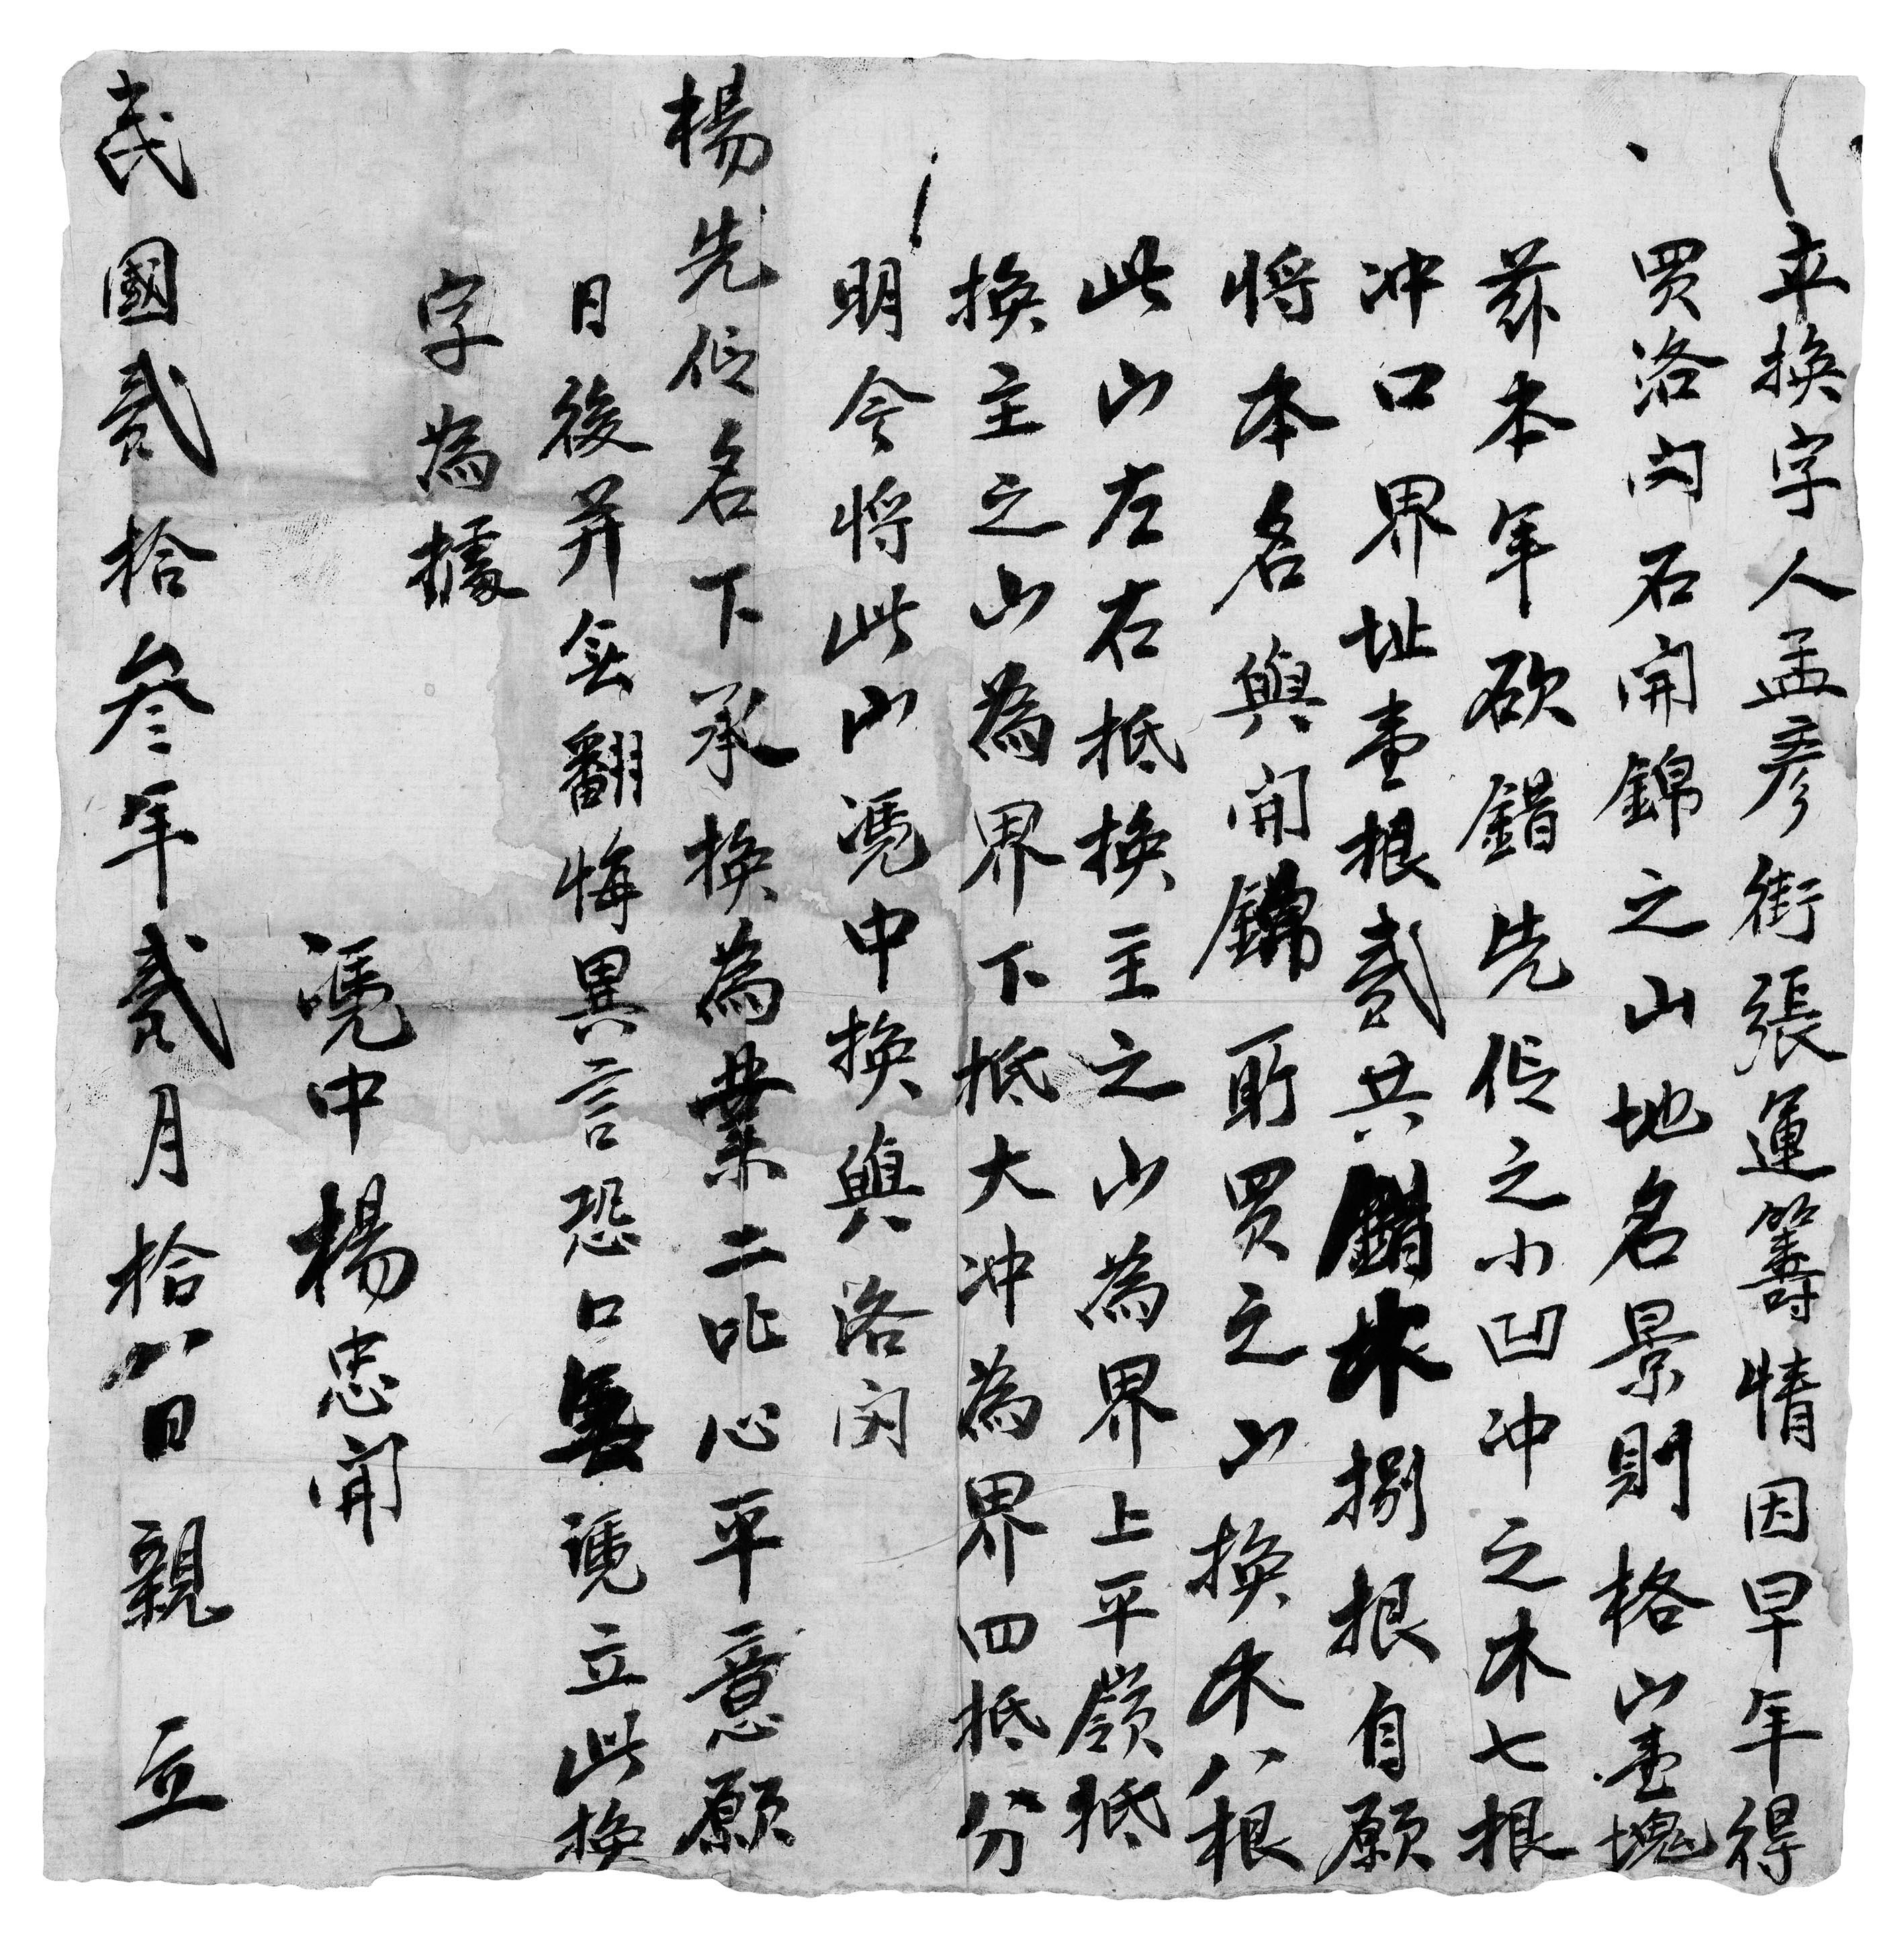 立換字人孟彥街張運籌情因早年得
買洛内石開錦之山地名景則格山壹塊
茲本年砍錯先任之小凹冲之木七根
冲口界址壹根貳共錯木捌根自願
將本名與開錦所買之山換木八根
此山左右抵換主之山為界上平嶺抵
換主之山為界下抵大冲為界四抵分
明今將此山憑中換與洛内
楊先任名下承換為業二比心平意願
日後并無翻悔異言恐口無憑立此換
字為據
憑中楊忠開
民國貳拾叁年貳月拾八日親立